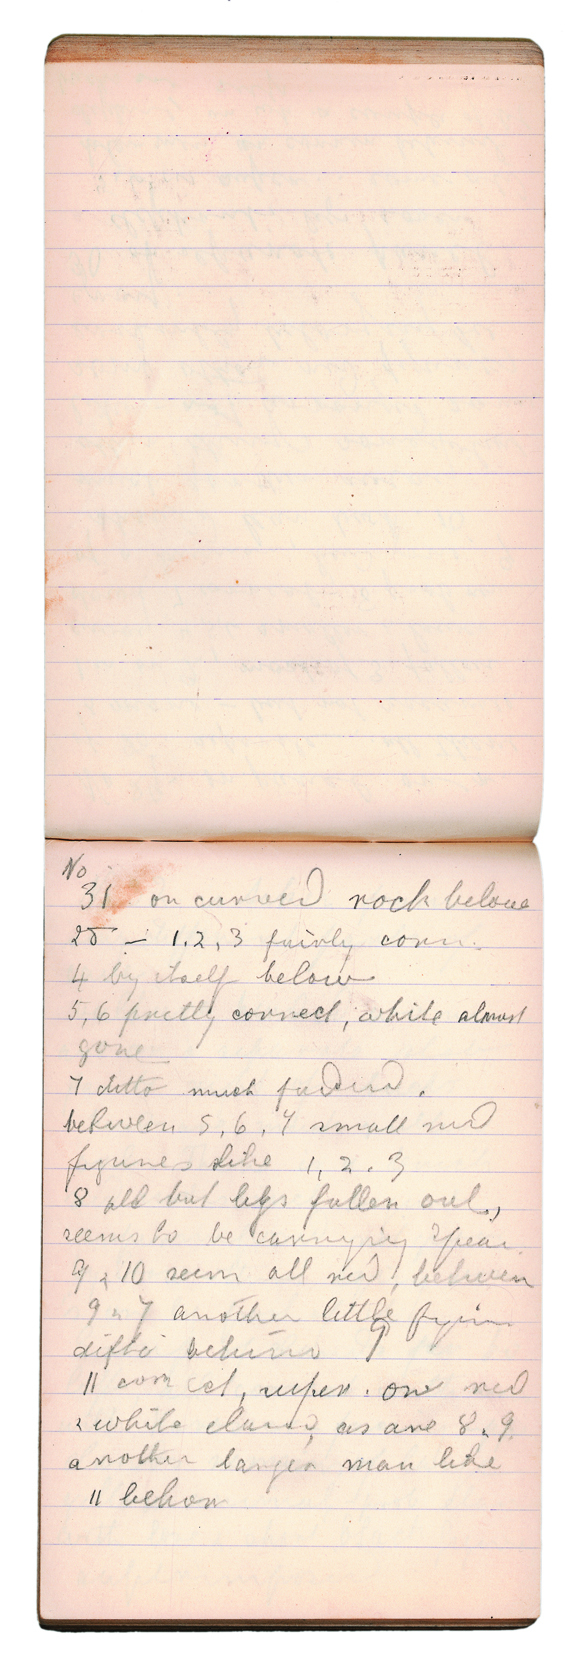 No
31. on curved rock below
25 – 1, 2, 3 fairly corr.
4 by itself below
5, 6 pretty correct, white almost
gone
7 ditto much faded.
between 5, 6, 7 small red
figures like 1, 2, 3
8 all but legs fallen out,
seems to be carrying spear.
9 & 10 seem all red, between
9 & 7 another little figure
ditto behind 9
11 correct, upper one red
& white, as are 8, 9
another larger man like
11 below